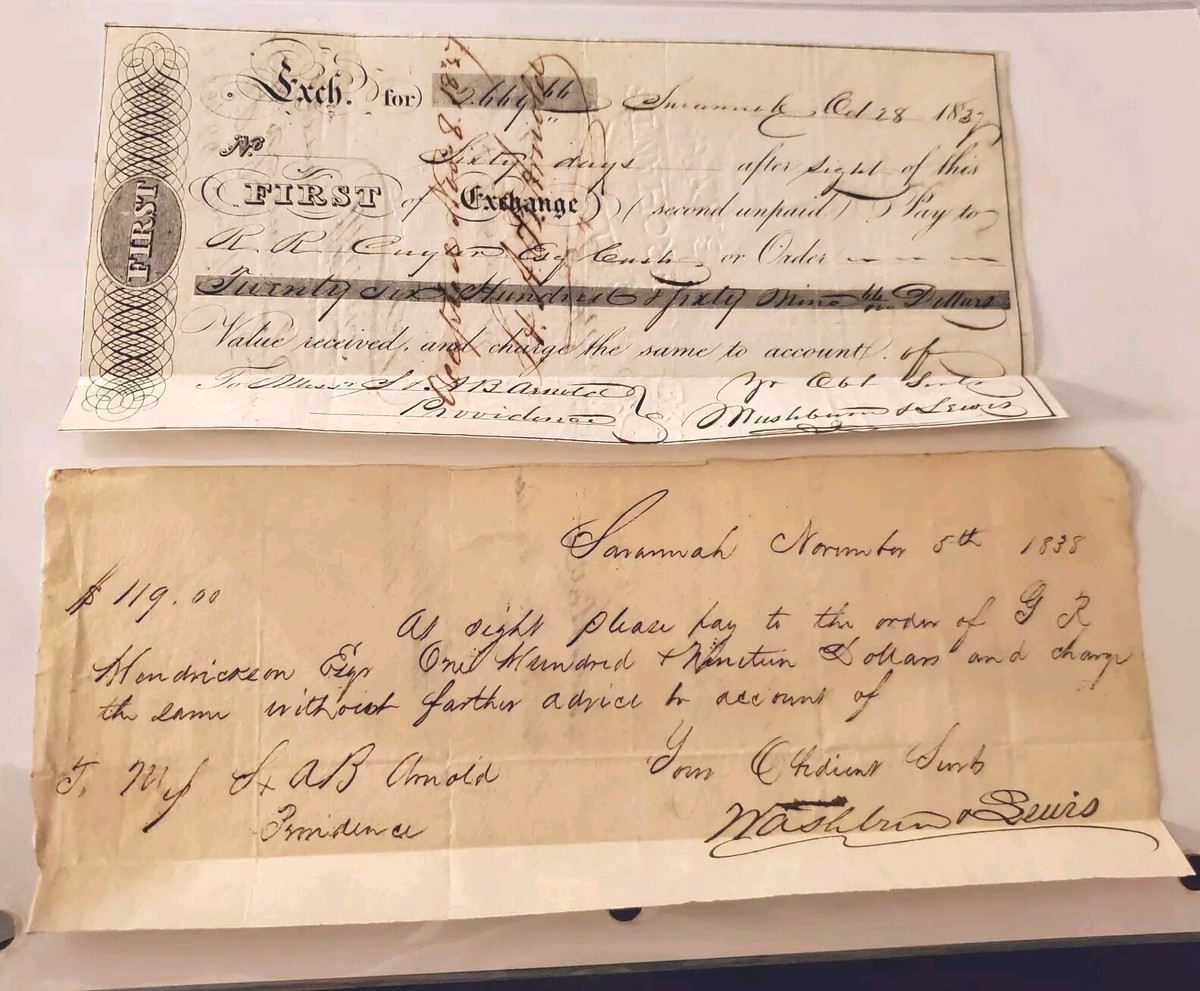 FIRST
Exch. for 2,669 66 Savannah Oct 28 1837
No
Sixty days after sight of this
FIRST of Exchange (second unpaid) Pay to
R. R. Cuyler Esq Cash. or Order
Twenty six Hundred & sixty Nine 66/100 Dollars
Value received, and charge the same to account of
To Messrs S. & A B Arnold Yr Obt Servts
Providence Washburn & Lewis
Savannah November 5th 1838
$ 119.00
At sight please pay to the order of G R
Hendrickson Esqr One Hundred & Nineteen Dollars and charge
the same without farther advice to account of
T. Mess S & A B Arnold Your Obedient Servts
Providence Washburn & Lewis